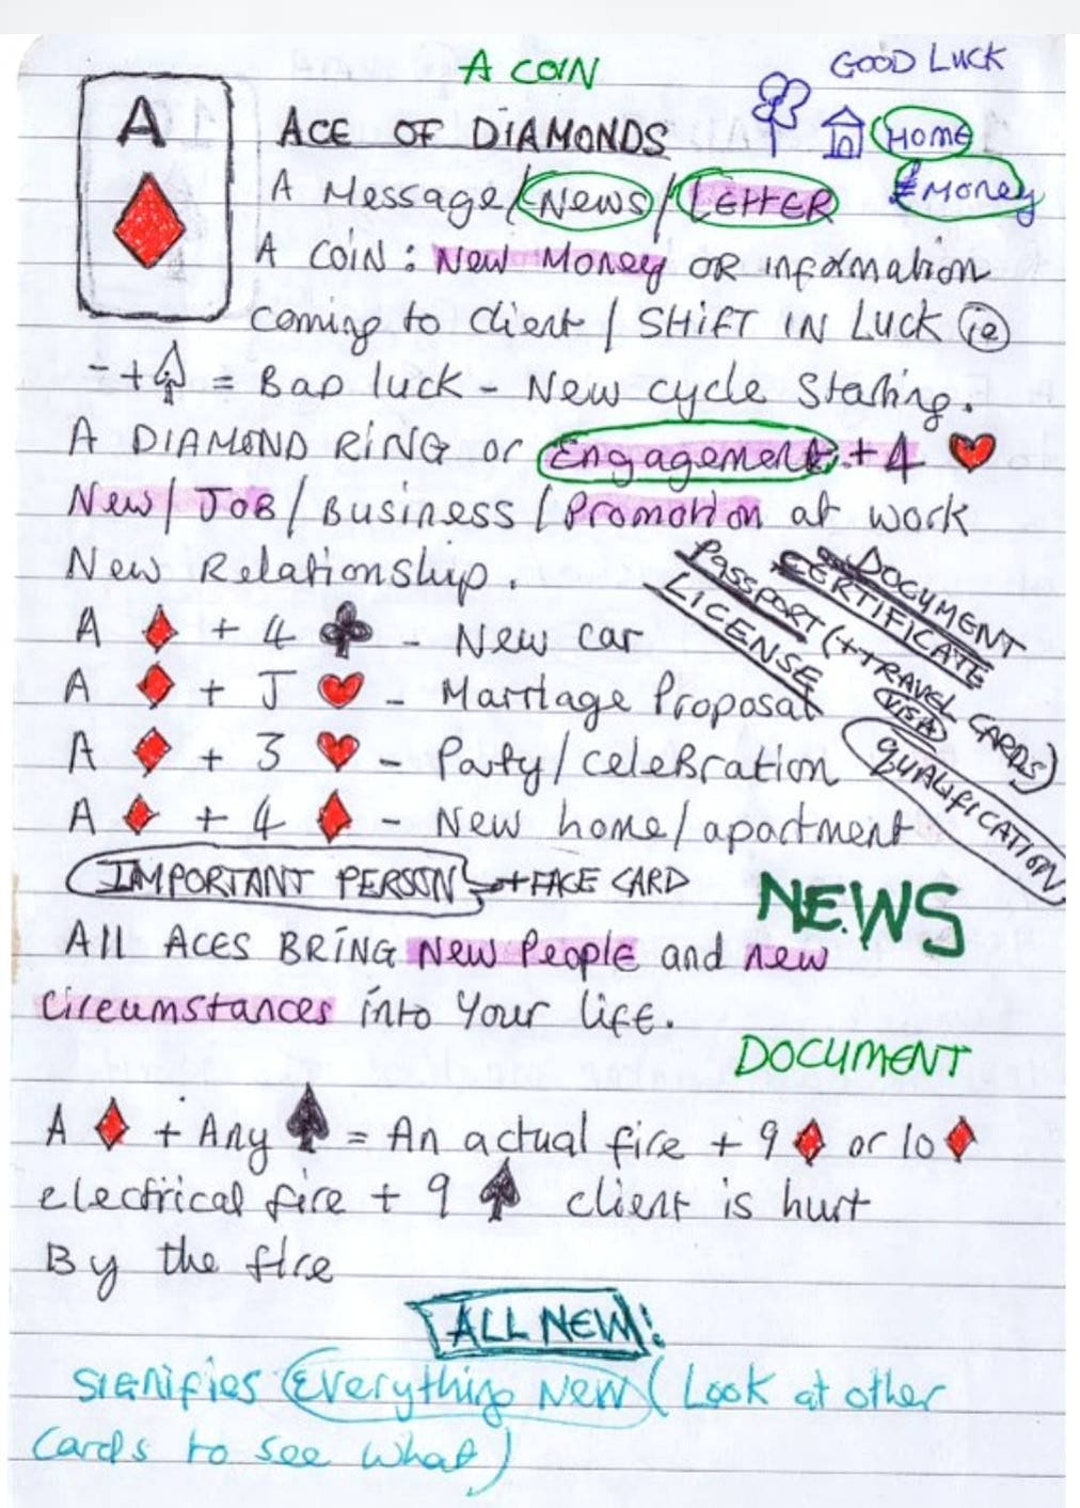 A COIN
GOOD LUCK
A
ACE OF DIAMONDS
HOME
A Message/News/LETTER
£ Money
A COIN: New Money OR information
coming to client / SHIFT IN LUCK ie
- + ♤ = Bad luck - New cycle Starting.
A DIAMOND RING or Engagement + 4 ♥
New / JOB / Business / Promotion at work
New Relationship.
DOCUMENT
CERTIFICATE
PASSPORT (+TRAVEL CARDS)
VISA
LICENSE
QUALIFICATION
A ♦ + 4 ♣ - New car
A ♦ + J ♥ - Marriage Proposal
A ♦ + 3 ♥ - Party/celebration
A ♦ + 4 ♦ - New home/apartment
IMPORTANT PERSON + FACE CARD
NEWS
All ACES BRING New People and new
circumstances into Your life.
DOCUMENT
A ♦ + Any ♠ = An actual fire + 9 ♦ or 10 ♦
electrical fire + 9 ♠ client is hurt
By the fire
ALL NEW!
Signifies Everything New (Look at other
Cards to see what)